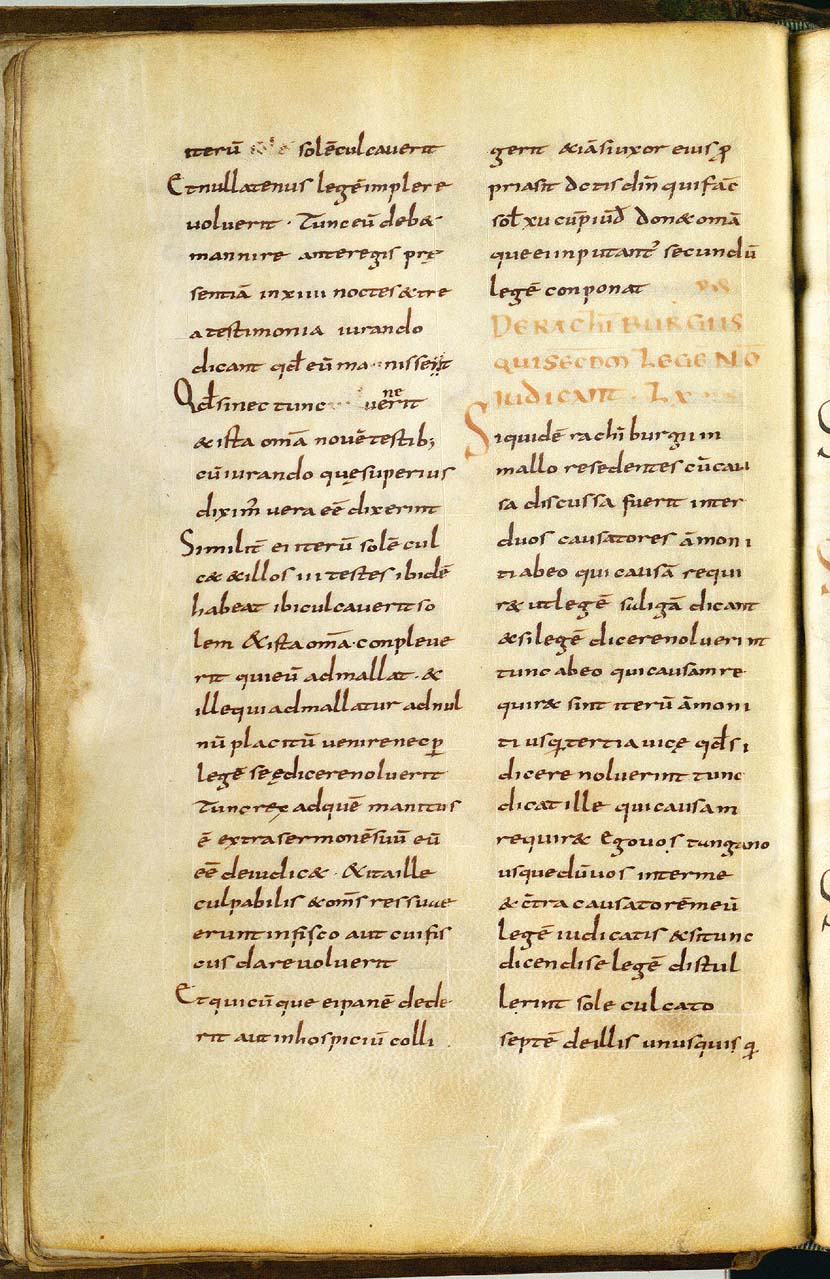 iterū solēculcauerit
Etnullatenus legēimplere
uoluerit · Tunceū deb&
mannire anteregis prę
sentiā inxiiii noctes&tre
a testimonia iurando
dicant qđ eū ma nisse
Qđsinec tunc uenerit
&ista omā nouētestib;
cūiurando quęsuperius
diximꝰ uera eē dixerint
Similit̄ eiiterū solē cul
c& &illos iii testes ibidē
habeat ibiculcauerit so
lem &ista omā·conpleue
rit quieū admallat · &
illequiadmallatur adnul
nū placitū uenirenecꝑ
legē seędicerenoluerit
Tuncrex adquē manitus
ē extrasermonēsuū eū
eē deiudic& · &itaille
culpabilis &oms̄ ressuae
eruntinfisco aut cuifis
cus dareuoluerit
Etquicūque eipanē dede
rit aut inhospiciū colli
gerit &iāsiuxor eius ꝓ
priasit dctis din̄ quifac̄
sol̄ xu cul̄p iud̄ don& omā
queeiinputantˀ secundū
legē conponat
DE RACHĪ BURGIIS
QUISECDOM LEGE NŌ
IUDICANT · LX
Siquidē rachī burgii in
mallo resedentes cūcau
sa discussa fuerit inter
duos causatores āmoni
ti abeo qui causā requi
r& utlegē saligā dicant
&silegē dicerenoluerint
tunc abeo quicausamre
quir& sint iterū āmoni
ti usq; tertia uicę qđsi
dicere noluerint tunc
dicat ille quicausam
requir& Egouos tungano
usquedūuos interme
&c̄tra causatorēmeū
legē iudicatis &situnc
dicendiselegē distul
lerint sole culcato
septē deillis unusquisq;